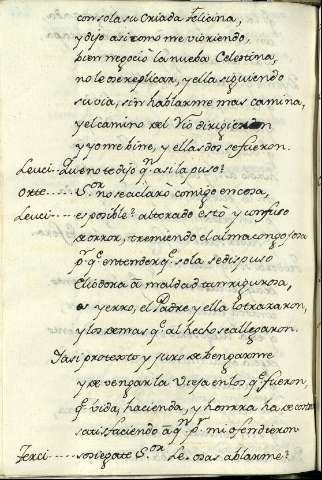 con sola su criada felicina,
y dijo asi como me vio riendo,
bien negoció la nueba Celestina,
no le ose replicar, y ella siguiendo
su via, sin hablarme mas camina,
y el camino del Rio dirigieron
y yo me bine, y ellas dos se fueron.
Leuci. Que no te dijo qn asi la puso?
Orte. Sor no se aclaró comigo en cosa,
Leuci. es posible? alterado estò y confuso
de orror, tremiendo el alma congojosa
pr qe entender qe sola se dispuso
Eliodora â maldad tan rigurosa,
es yerro, el Padre y ella lo trazaron,
y los demas qe al hecho se allegaron.
Y asi protexto y juro de bengarme
y de vengar la Vieja en los qe fueron,
qe vida, hacienda, y honrra ha de
satisfaciendo â qn pr mi ofendieron
Terci. sosiegate Sor Le. osas ablarme?